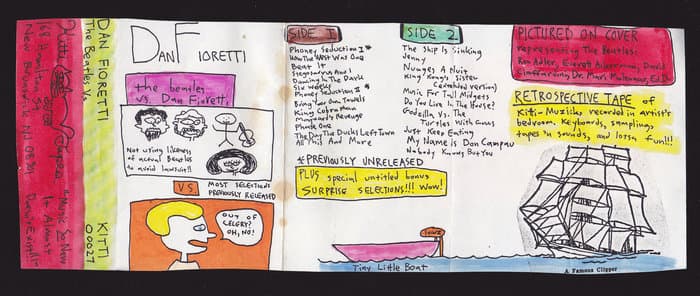 DAN FIORETTI
The Beatles Vs.
KITTI
00027
168 Hamilton St.
"Music So New
It Almost
Doesn't Exist!!"
DAN FIORETTI
the beatles
vs. Dan Fioretti
Not using likeness
of actual Beatles
to avoid lawsuit!!
VS.
MOST SELECTIONS
PREVIOUSLY RELEASED
OUT OF
CELERY?
OH, NO!
SIDE 1
Phoney Seduction I*
How The West Was One
Beat It
Stegosaurus And I
Dancing In The Dark
Six Weeks
Phoney Seduction II*
Bring Your Own Towels
King Cobraman
Maynard's Revenge
Phase One
The Day The Ducks Left Town
All This And More
*PREVIOUSLY UNRELEASED
PLUS special untitled bonus
SURPRISE SELECTIONS!!! Wow!
SIDE 2
The Ship Is Sinking
Jenny
Nuages A Nuit
King Kong's Sister
(extended version)
Music For Tall Midgets
Do You Live In The House?
Godzilla Vs. The
Turtles With Guns
Just Keep Eating
My Name is Don Campau
Nobody Knows But You
PICTURED ON COVER
representing The Beatles:
Ken Adler, Everett Ackerman, David
Dr. Mark
RETROSPECTIVE TAPE of
Kitti-Muzick, recorded in artist's
bedroom. Keyboards, sampling,
tapes 'n sounds, and lotsa fun!!!
Tiny Little Boat
A Famous Clipper